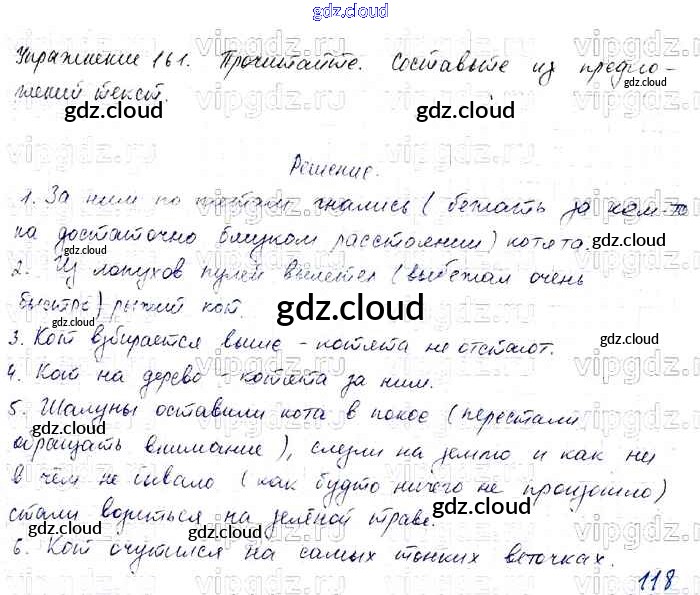 gdz.cloud
Упражнение 161. Прочитайте. Составьте из предло-
жений текст.
gdz.cloud
gdz.cloud
Решение.
1. За ним по пятам гнались (бежать за кем-то
на достаточно близком расстоянии) котята.
gdz.cloud
2. Из лопухов пулей вылетел (выбежал очень
быстро) рыжий кот.
gdz.cloud
gdz.cloud
gdz.cloud
3. Кот взбирается выше - котята не отстают.
4. Кот на дерево - котята за ним.
5. Шалуны оставили кота в покое (перестали
обращать внимание), слезли на землю и как ни
gdz.cloud
gdz.cloud
в чём не бывало (как будто ничего не произошло)
стали возиться на зелёной траве.
gdz.cloud
gdz.cloud
gdz.cloud
6. Кот очутился на самых тонких веточках.
118